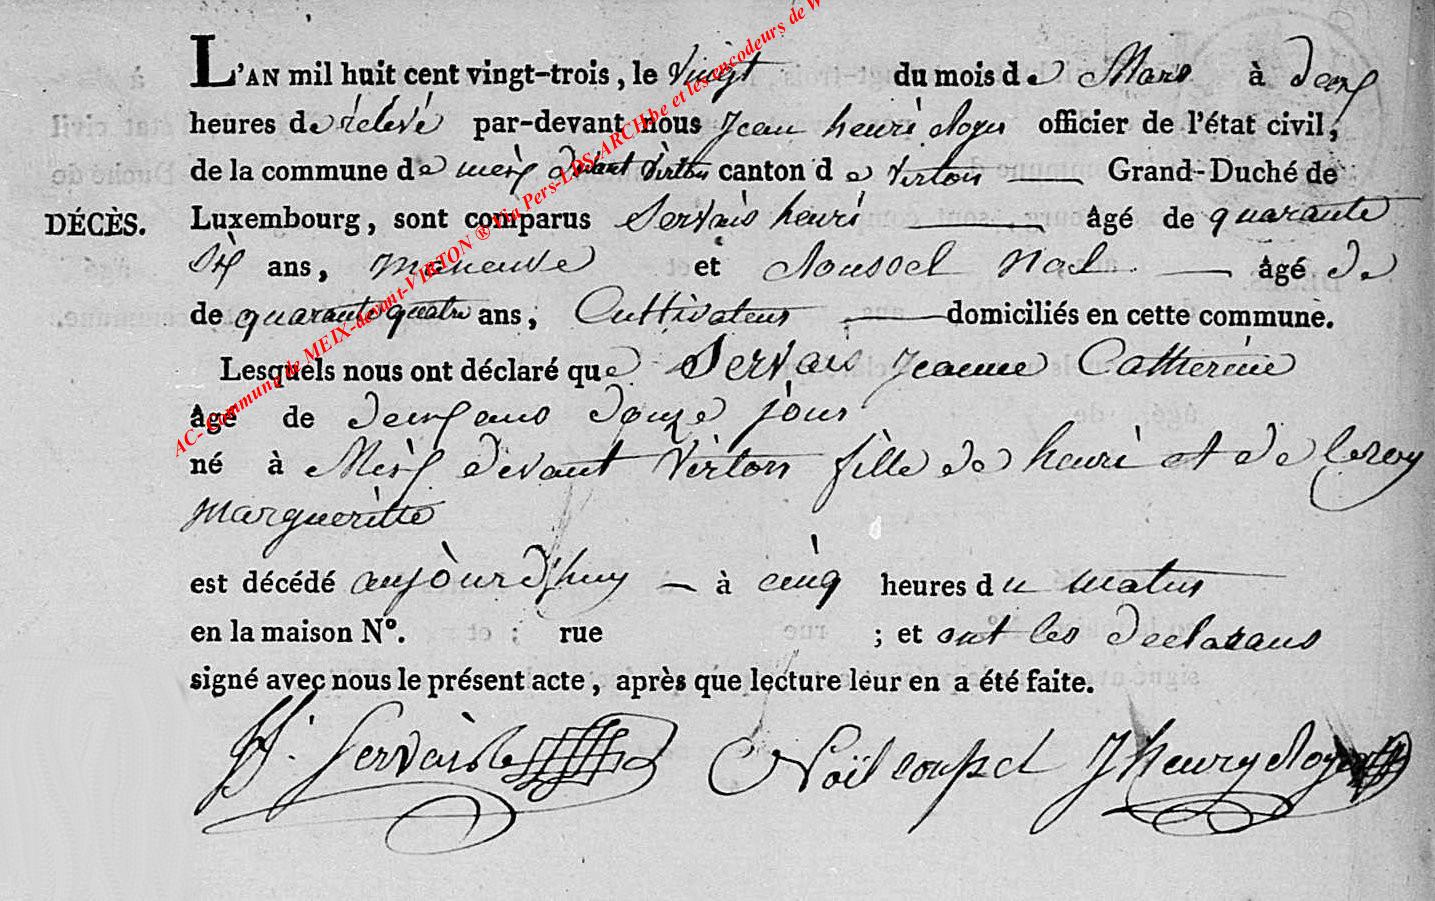 L'AN mil huit cent vingt-trois, le Vingt du mois de Mars à deux
heures de rélevé par-devant nous Jean henri officier de l'état civil,
de la commune de meix devant Virton canton de Virton Grand-Duché de
DÉCÈS. Luxembourg, sont comparus Servais henri âgé de quarante
six ans, maneuvre et Noel âgé de
de quarante quatre ans, Cultivateur domiciliés en cette commune.
Lesquels nous ont déclaré que Servais Jeanne Catherine
âgé de deux ans douze jour
né à Meix devant Virton fille de henri et de Leroy
Margueritte
est décédé aujourd'huy à cinq heures du matin
en la maison N°. ; rue ; et ont les declarans
signé avec nous le présent acte, après que lecture leur en a été faite.
H. Servais Noël J henry
AC- Commune de MEIX-devant-VIRTON ® Via Pers-LDS-ARCH.be et les encodeurs de